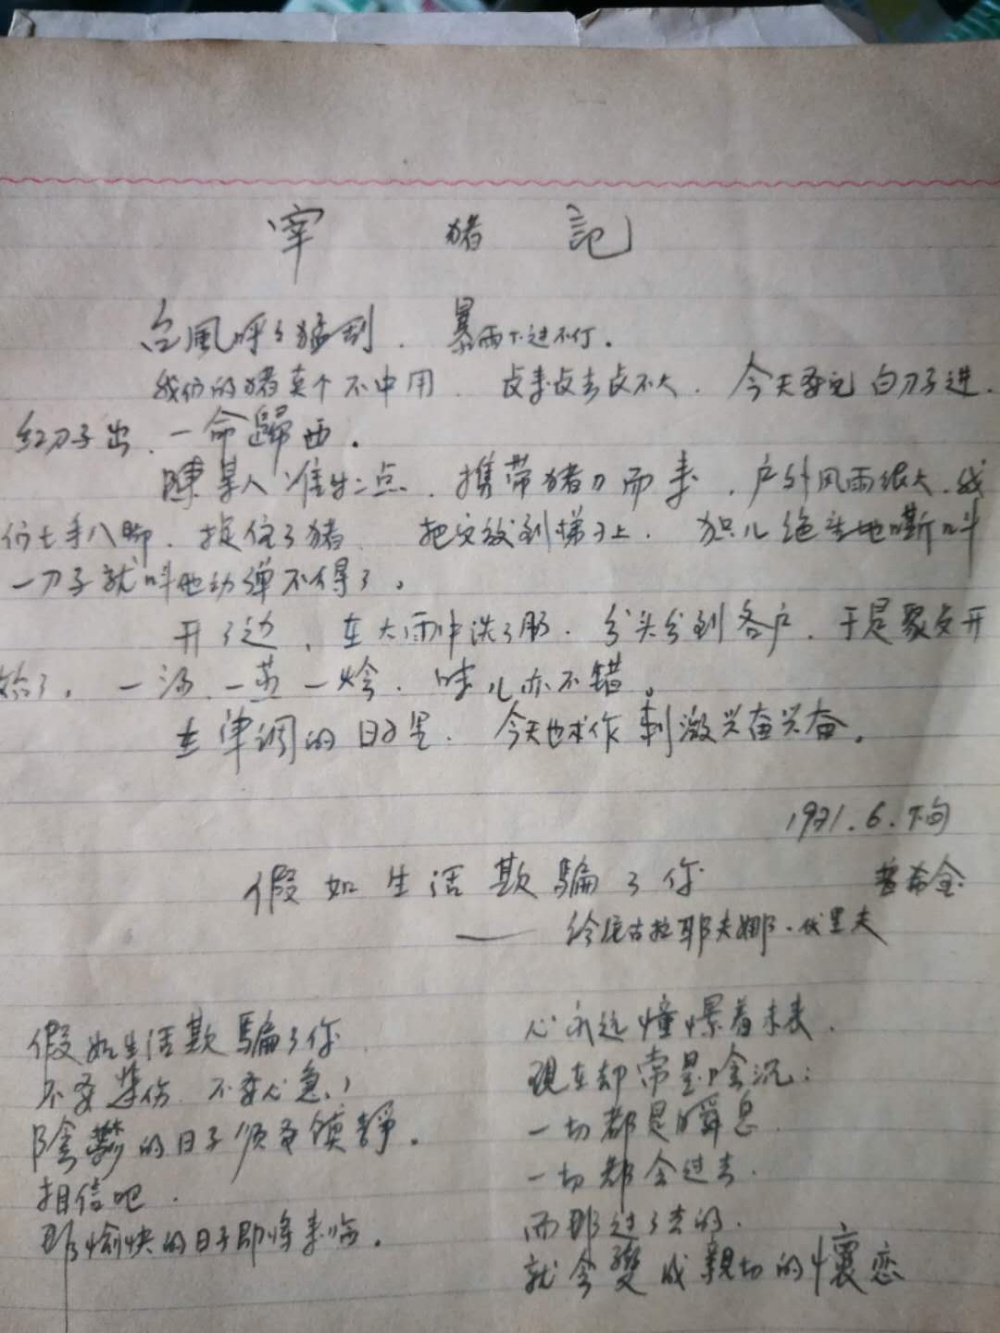 宰 猪 記
台風呼々猛刮. 暴雨下过不停.
我们的猪真个不中用 卖来卖去卖不大. 今天要它白刀子进.
红刀子出、一命歸西.
陳某人准时二点、携带猪刀而来, 户外风雨很大、我
们七手八脚、捉住了猪 把它放到梯子上. 猪儿绝望地嘶叫
一刀子就叫他动弹不得了。
开了边, 在大雨中洗了肠. 分头分到各户, 于是聚会开
始了. 一汤、一蒸一烩. 味儿亦不错。
在单调的日子里. 今天也算作刺激兴奋兴奋。
1971.6.下旬
假如生活欺騙了你 普希金
—— 给尼古拉耶夫娜·伏里夫
假如生活欺騙了你
不要悲伤 不要心急!
陰鬱的日子须要镇静.
相信吧.
那愉快的日子即将来临.
心永远憧憬着未来.
現在却常是陰沉:
一切都是瞬息
一切都会过去.
而那过了去的.
就会變成親切的懷恋